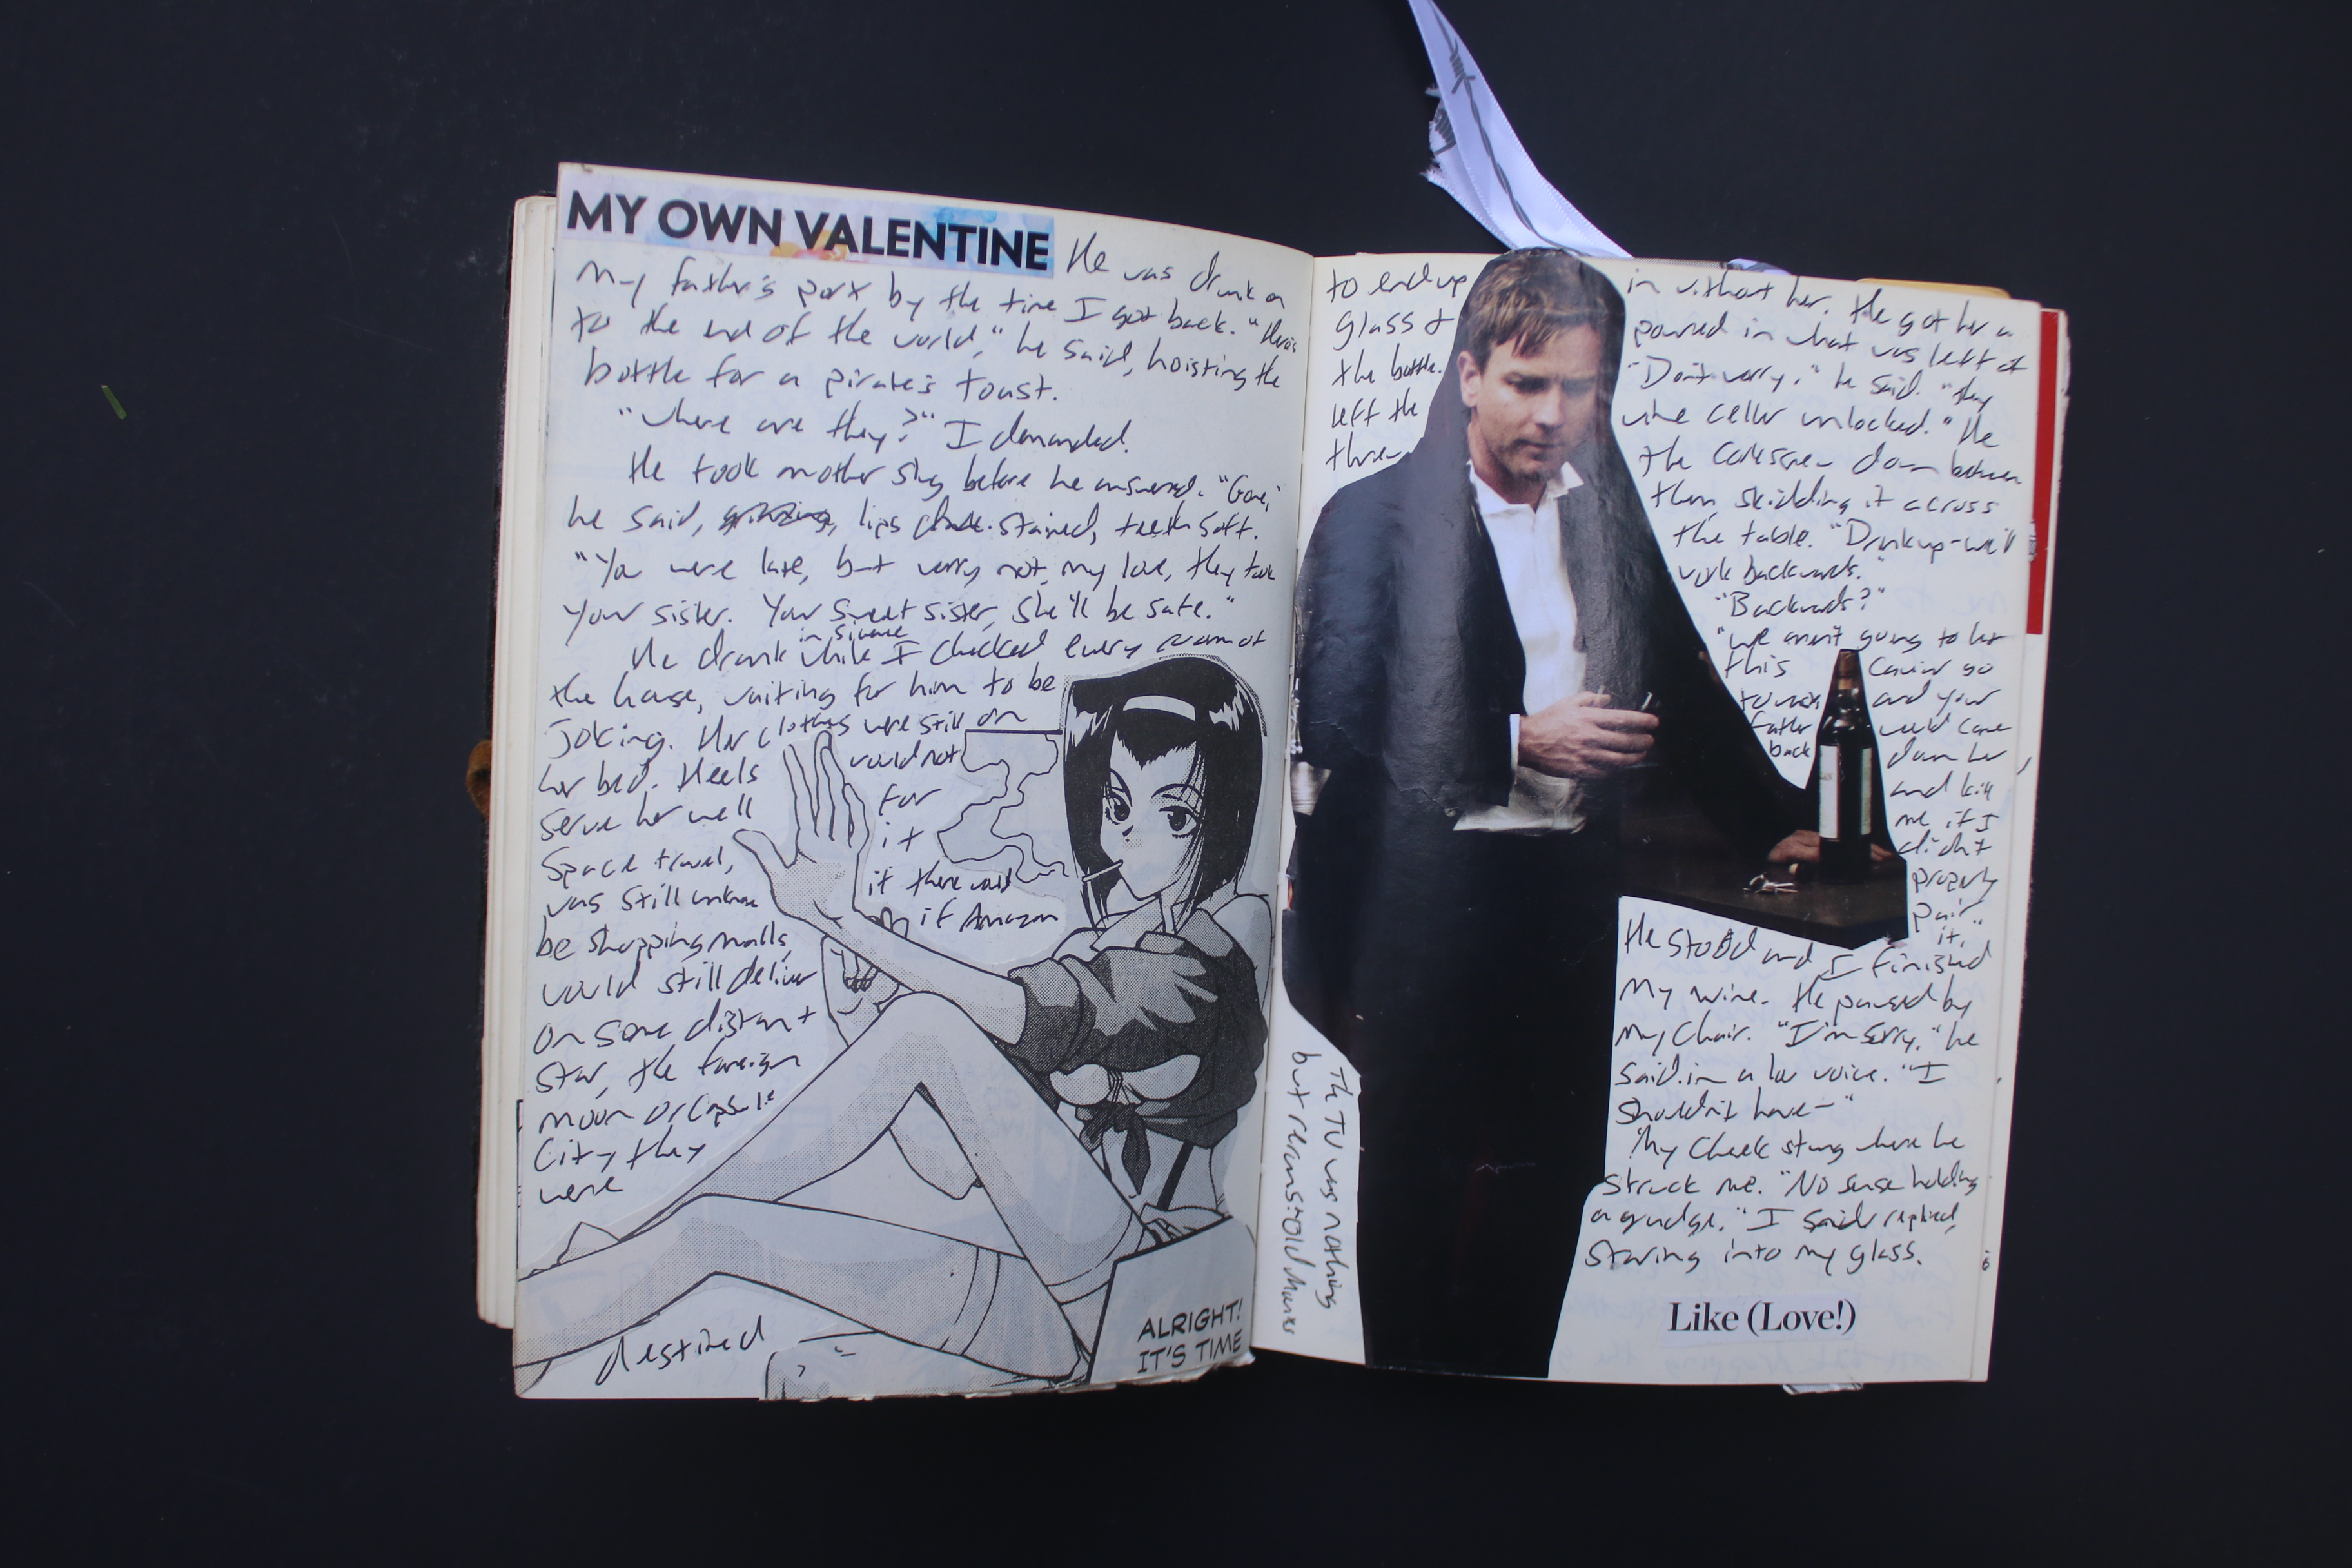 MY OWN VALENTINE
He was drunk on
my father's port by the time I got back. "Here's
to the end of the world," he said, hoisting the
bottle for a pirate's toast.
"Where are they?" I demanded.
He took another slug before he answered. "Gone,"
he said, lips stained, teeth soft.
"You were late, but worry not, my love, they took
your sister. Your sweet sister, she'll be safe."
in silence
He drank while I checked every room of
the house, waiting for him to be
joking. Her clothes were still on
her bed. Heels would not
serve her well for
space travel, it
was still unknown if there would
be shopping malls, if Amazon
would still deliver
on some distant
star, the foreign
moon or capsule
city they
were
destined
ALRIGHT!
IT'S TIME
to end up in without her. He got her a
glass & poured in what was left of
the bottle. "Don't worry," he said. "They
left the wine cellar unlocked." He
threw the corkscrew down between
them, skidding it across
the table. "Drink up-we'll
work backwards."
"Backwards?"
"We aren't going to let
this Caviar go
to waste and your
father would come
back down here
and kill
me if I
didn't
properly
pair
it."
He stood and I finished
my wine. He paused by
my chair. "I'm sorry," he
said in a low voice. "I
shouldn't have-"
My cheek stung where he
struck me. "No sense holding
a grudge," I said replied,
staring into my glass.
Like (Love!)
The TV was nothing
but reruns: Old